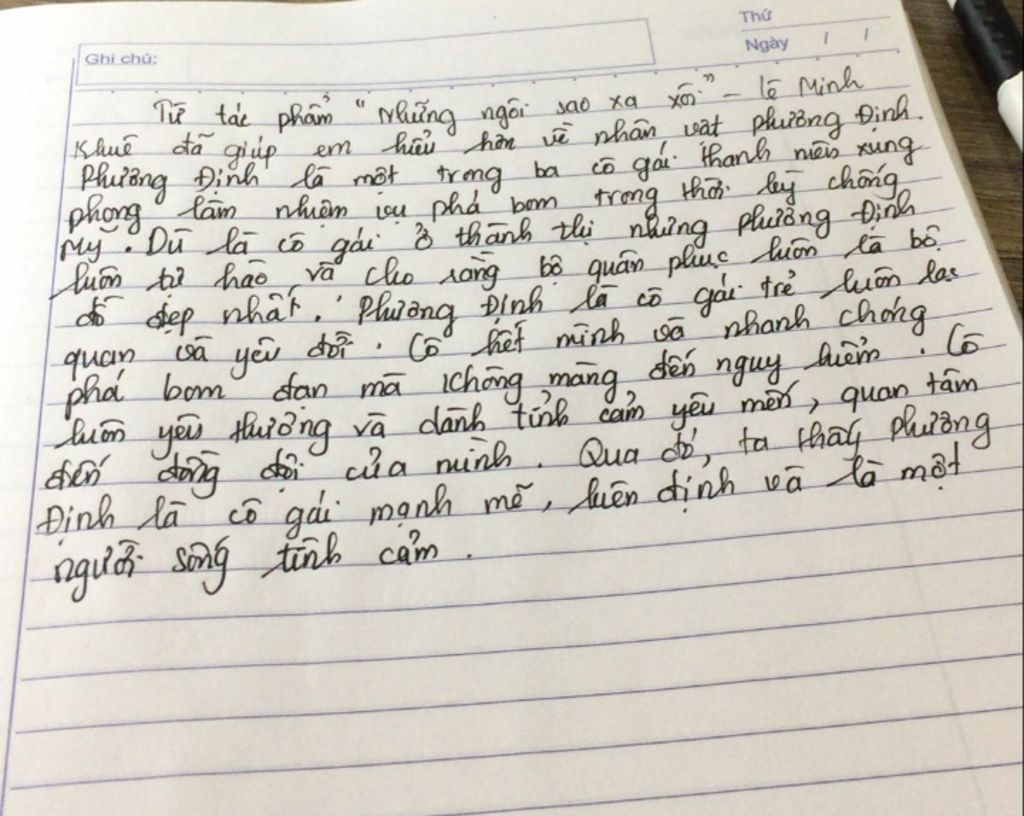 Thứ
Ghi chú:
Ngày / /
Từ tác phẩm "Những ngôi sao xa xôi" - Lê Minh
Khuê đã giúp em hiểu hơn về nhân vật Phương Định.
Phương Định là một trong ba cô gái thanh niên xung
phong làm nhiệm vụ phá bom trong thời kỳ chống
Mỹ. Dù là cô gái ở thành thị nhưng Phương Định
luôn tự hào và cho rằng bộ quân phục luôn là bộ
đồ đẹp nhất. Phương Định là cô gái trẻ luôn lạc
quan và yêu đời. Cô hết mình và nhanh chóng
phá bom đạn mà không màng đến nguy hiểm. Cô
luôn yêu thương và dành tình cảm yêu mến, quan tâm
đến đồng đội của mình. Qua đó, ta thấy Phương
Định là cô gái mạnh mẽ, kiên định và là một
người sống tình cảm.